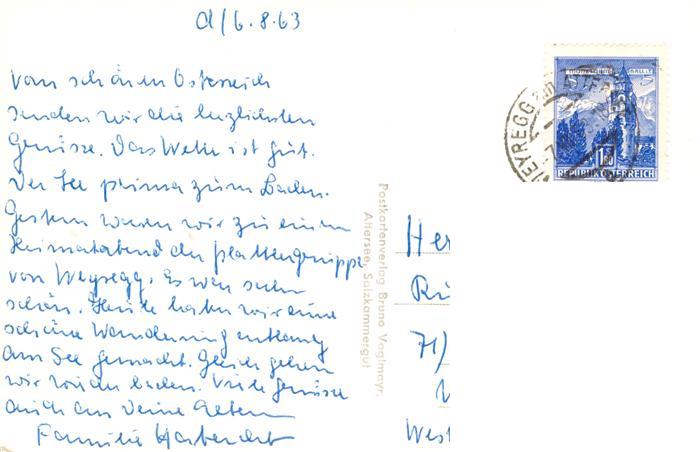 d/6.8.63
Vom schönen Österreich
senden wir die herzlichsten
Grüsse. Das Wetter ist gut.
Der See prima zum Baden.
Gestern waren wir zu einem
Heimatabend der plattlergruppe
von Weyregg. Es war sehr
schön. Heute haben wir eine
schöne Wanderung entlang
am See gemacht. Gleich gehen
wir wieder baden. Viele Grüsse
auch an Deine Eltern
Familie
Postkartenverlag Bruno Voglmayr,
Attersee, Salzkammergut
WEYREGG
5
1.50
REPUBLIK ÖSTERREICH
Her
Ri
71/
West